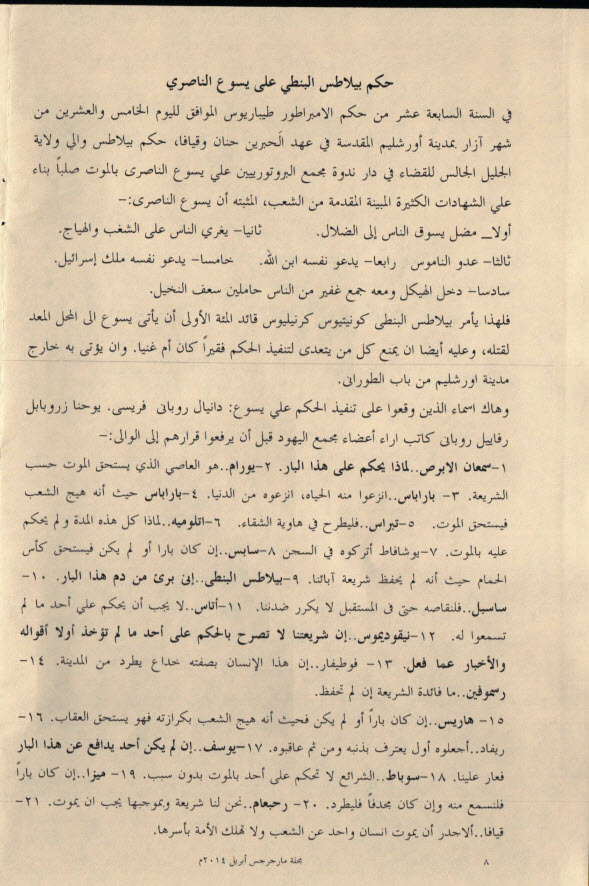 حكم بيلاطس البنطي على يسوع الناصري
في السنة السابعة عشر من حكم الامبراطور طيباريوس الموافق لليوم الخامس والعشرين من
شهر آزار بمدينة أورشليم المقدسة في عهد الَحبرين حنان وقيافا، حكم بيلاطس والي ولاية
الجليل الجالس للقضاء في دار ندوة مجمع البروتوريين علي يسوع الناصرى بالموت صلباً بناء
علي الشهادات الكثيرة المبينة المقدمة من الشعب، المثبته أن يسوع الناصرى:–
أولا_ مضل يسوق الناس إلى الضلال. ثانيا– يغري الناس على الشغب والهياج.
ثالثا– عدو الناموس رابعا– يدعو نفسه ابن الله. خامسا– يدعو نفسه ملك إسرائيل.
سادسا– دخل الهيكل ومعه جمع غفير من الناس حاملين سعف النخيل.
فلهذا يأمر بيلاطس البنطى كونيتيوس كرنيليوس قائد المئة الأولى أن يأتى يسوع الى المحل المعد
لقتله، وعليه أيضا ان يمنع كل من يتعدى لتنفيذ الحكم فقيراً كان أم غنيا. وان يؤتى به خارج
مدينة اورشليم من باب الطورانى.
وهاك اسماء الذين وقعوا على تنفيذ الحكم علي يسوع: دانيال روبانى فريسى. يوحنا زروبابل
رفاييل روبانى كاتب اراء أعضاء مجمع اليهود قبل أن يرفعوا قرارهم إلى الوالى:–
١–سمعان الابرص..لماذا يحكم على هذا البار. ٢–يورام..هو العاصي الذي يستحق الموت حسب
الشريعة. ٣– باراباس..انزعوا منه الحياه، انزعوه من الدنيا. ٤–باراباس حيث أنه هيج الشعب
فيستحق الموت. ٥–تبراس..فليطرح في هاوية الشقاء. ٦–اتلوميه..لماذا كل هذه المدة ولم يحكم
عليه بالموت. ٧–يوشافاط أتركوه في السجن ٨–سابس..إن كان بارا أو لم يكن فيستحق كأس
الحمام حيث أنه لم يحفظ شريعة آبائنا. ٩–بيلاطس البنطى..إنى برئ من دم هذا البار. ١٠–
ساسبل..فلنقاصه حتى فى المستقبل لا يكرر ضدننا. ١١–أتاس..لا يجب أن يحكم علي أحد ما لم
تسمعوا له. ١٢–نيقوديموس..إن شريعتنا لا تصرح بالحكم على أحد ما لم تؤخذ أولا أقواله
والأخبار عما فعل. ١٣– فوطيفار..إن هذا الإنسان بصفته خداع يطرد من المدينة. ١٤–
رسموفين..ما فائدة الشريعة إن لم تحفظ.
١٥– هاريس..إن كان باراً أو لم يكن فحيث أنه هيج الشعب بكرازته فهو يستحق العقاب. ١٦–
ريفاد..أجعلوه أول يعترف بذنبه ومن ثم عاقبوه. ١٧–يوسف..إن لم يكن أحد يدافع عن هذا البار
فعار علينا. ١٨–سوباط..الشرائع لا تحكم على أحد بالموت بدون سبب. ١٩– ميزا..إن كان باراً
فلنسمع منه وإن كان مجدفاً فليطرد. ٢٠– رحبعام..نحن لنا شريعة وبموجبها يجب ان يموت. ٢١–
قيافا..ألاجدر أن يموت انسان واحد عن الشعب ولا تهلك الأمة بأسرها.
٨ مجلة مارجرجس أبريل ٢٠١٤م